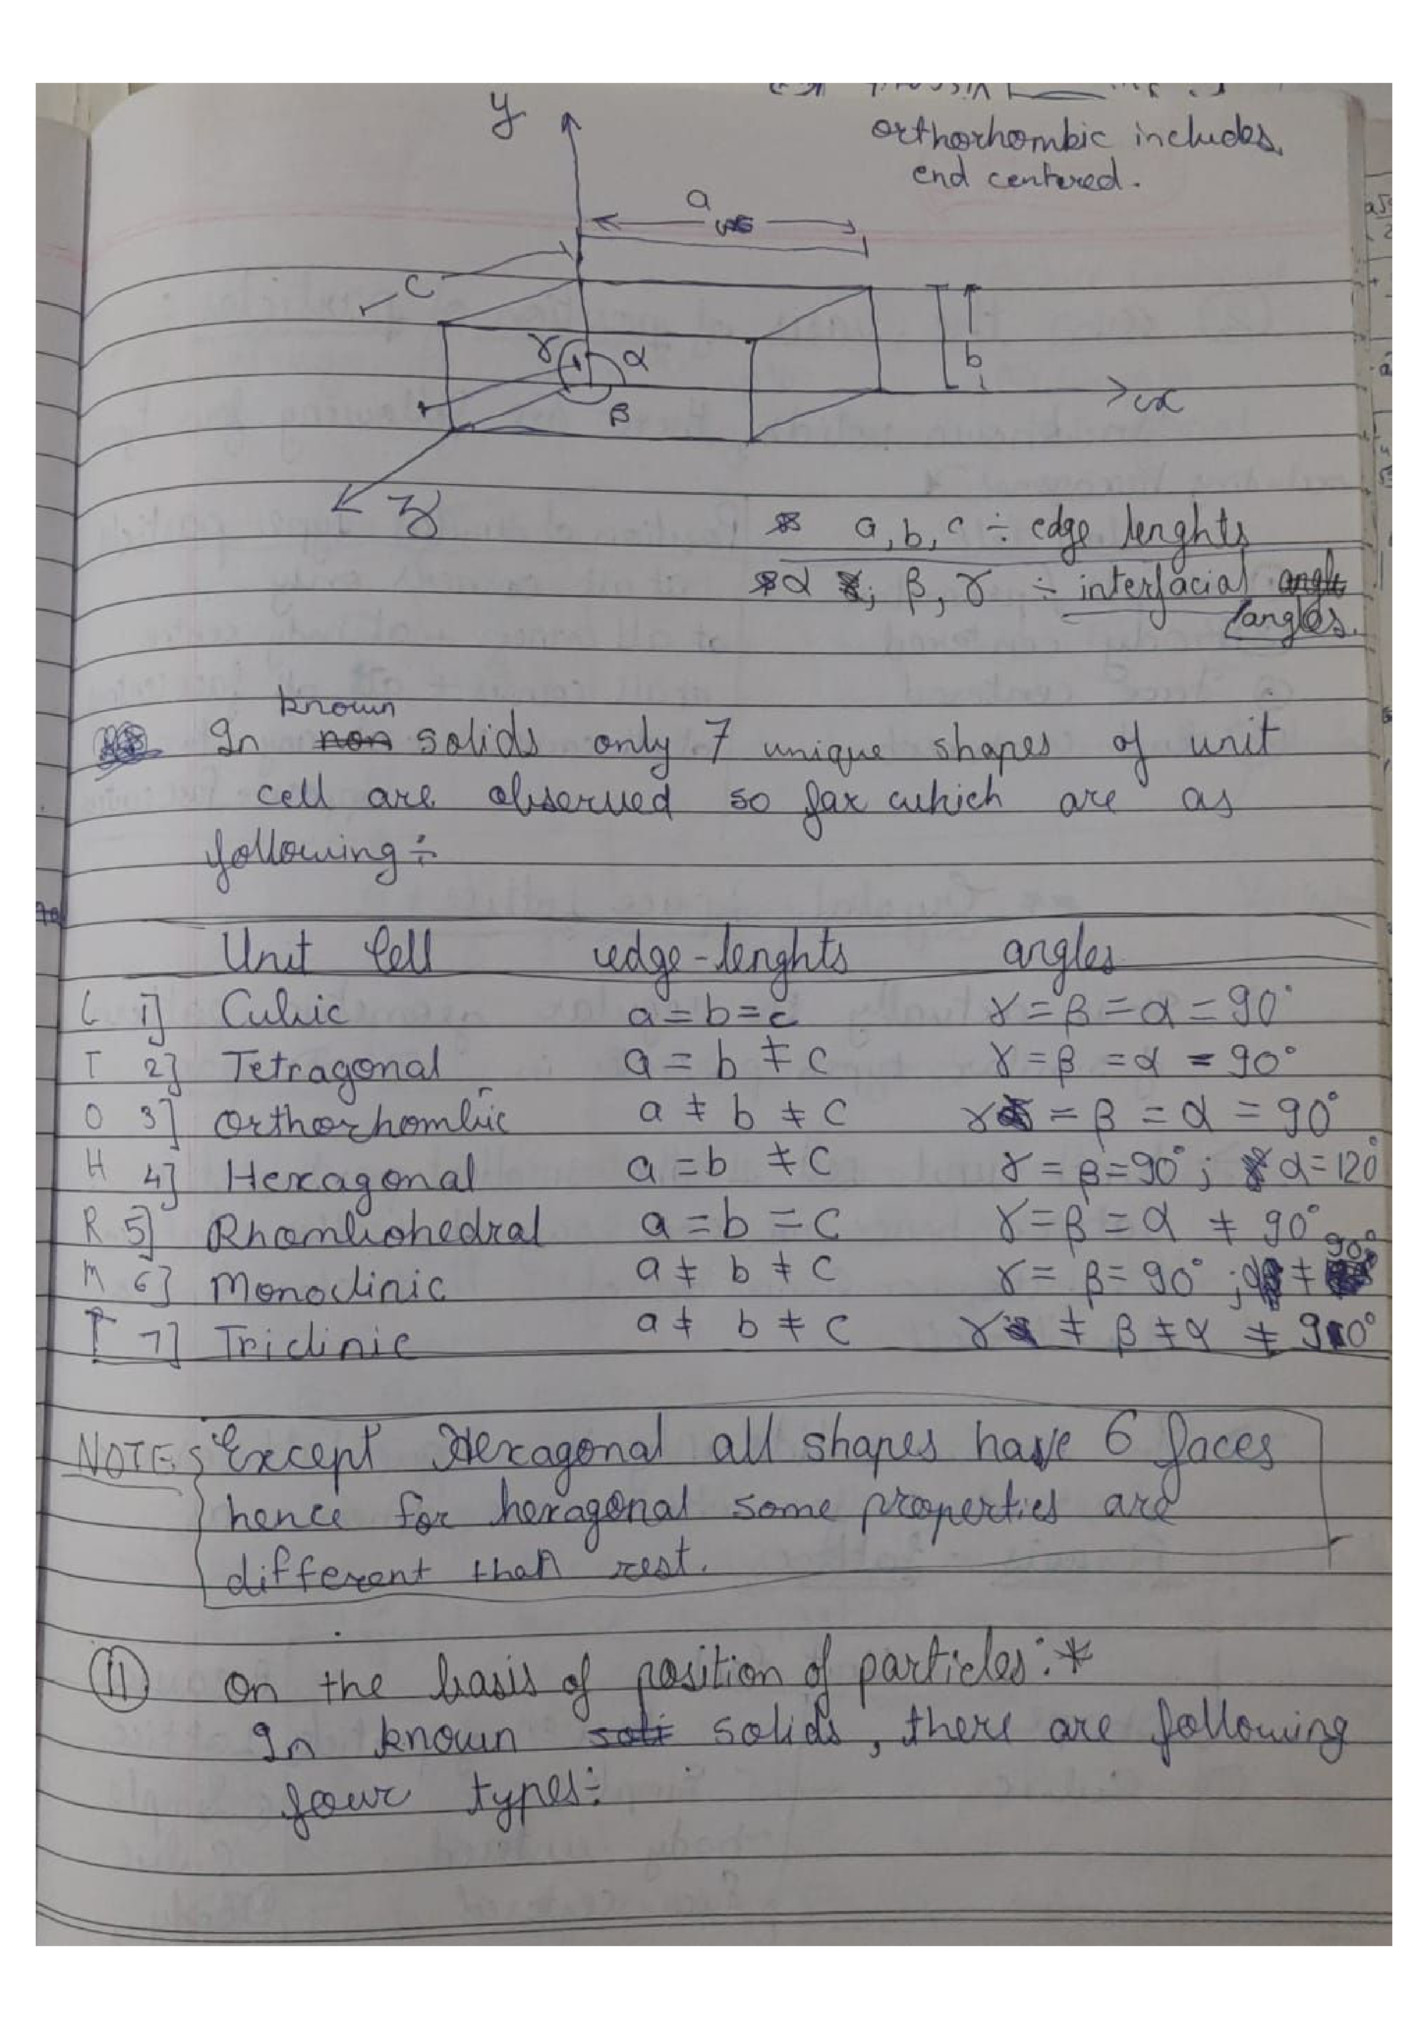 orthorhombic includes
end centered.
y
a
c
γ α
b
β
x
z
* a, b, c ÷ edge lenghts
* α ; β, γ ÷ interfacial angle
angles.
known
In non solids only 7 unique shapes of unit
cell are observed so far which are as
following ÷
Unit Cell edge-lenghts angles
C 1] Cubic a = b = c γ = β = α = 90°
T 2] Tetragonal a = b ≠ c γ = β = α = 90°
O 3] Orthorhombic a ≠ b ≠ c γ = β = α = 90°
H 4] Hexagonal a = b ≠ c γ = β = 90° ; α = 120°
R 5] Rhombohedral a = b = c γ = β = α ≠ 90°
M 6] Monoclinic a ≠ b ≠ c γ = β = 90° ; α ≠ 90°
T 7] Triclinic a ≠ b ≠ c γ ≠ β ≠ α ≠ 90°
NOTE Except Hexagonal all shapes have 6 faces
hence for hexagonal some properties are
different than rest.
(II) on the basis of position of particles :*
In known soli solids, there are following
four types ÷